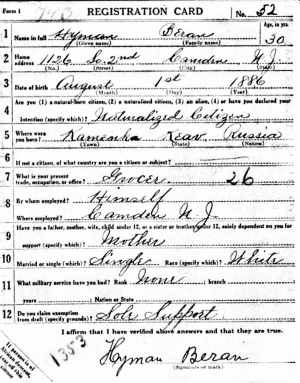 Form 1 REGISTRATION CARD No. 52
1 Name in full Hyman Beran Age, in yrs. 30
(Given name) (Family name)
2 Home address 1126 So. 2nd Camden N.J.
(No.) (Street) (City) (State)
3 Date of birth August 1st 1886
(Month) (Day) (Year)
4 Are you (1) a natural-born citizen, (2) a naturalized citizen, (3) an alien, (4) or have you declared your
intention (specify which)? Naturalized Citizen
5 Where were you born? Kamenka Keav Russia
(Town) (State) (Nation)
6 If not a citizen, of what country are you a citizen or subject?
7 What is your present trade, occupation, or office? Grocer 26
8 By whom employed? Himself
Where employed? Camden N.J.
9 Have you a father, mother, wife, child under 12, or a sister or brother under 12, solely dependent on you for
support (specify which)? Mother
10 Married or single (which)? Single Race (specify which)? White
11 What military service have you had? Rank None branch
years Nation or State
12 Do you claim exemption from draft (specify grounds)? Sole Support
I affirm that I have verified above answers and that they are true.
Hyman Beran